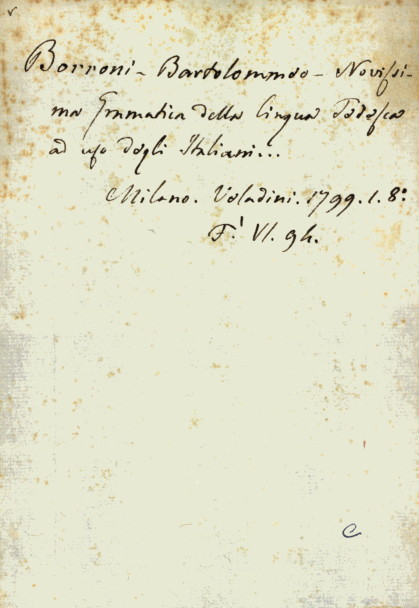 v
Borroni - Bartolommeo - Novissi-
ma Grammatica della lingua Tedesca
ad uso degli Italiani...
Milano. Veladini. 1799. 1. 8:
F.' VI. 94.
C